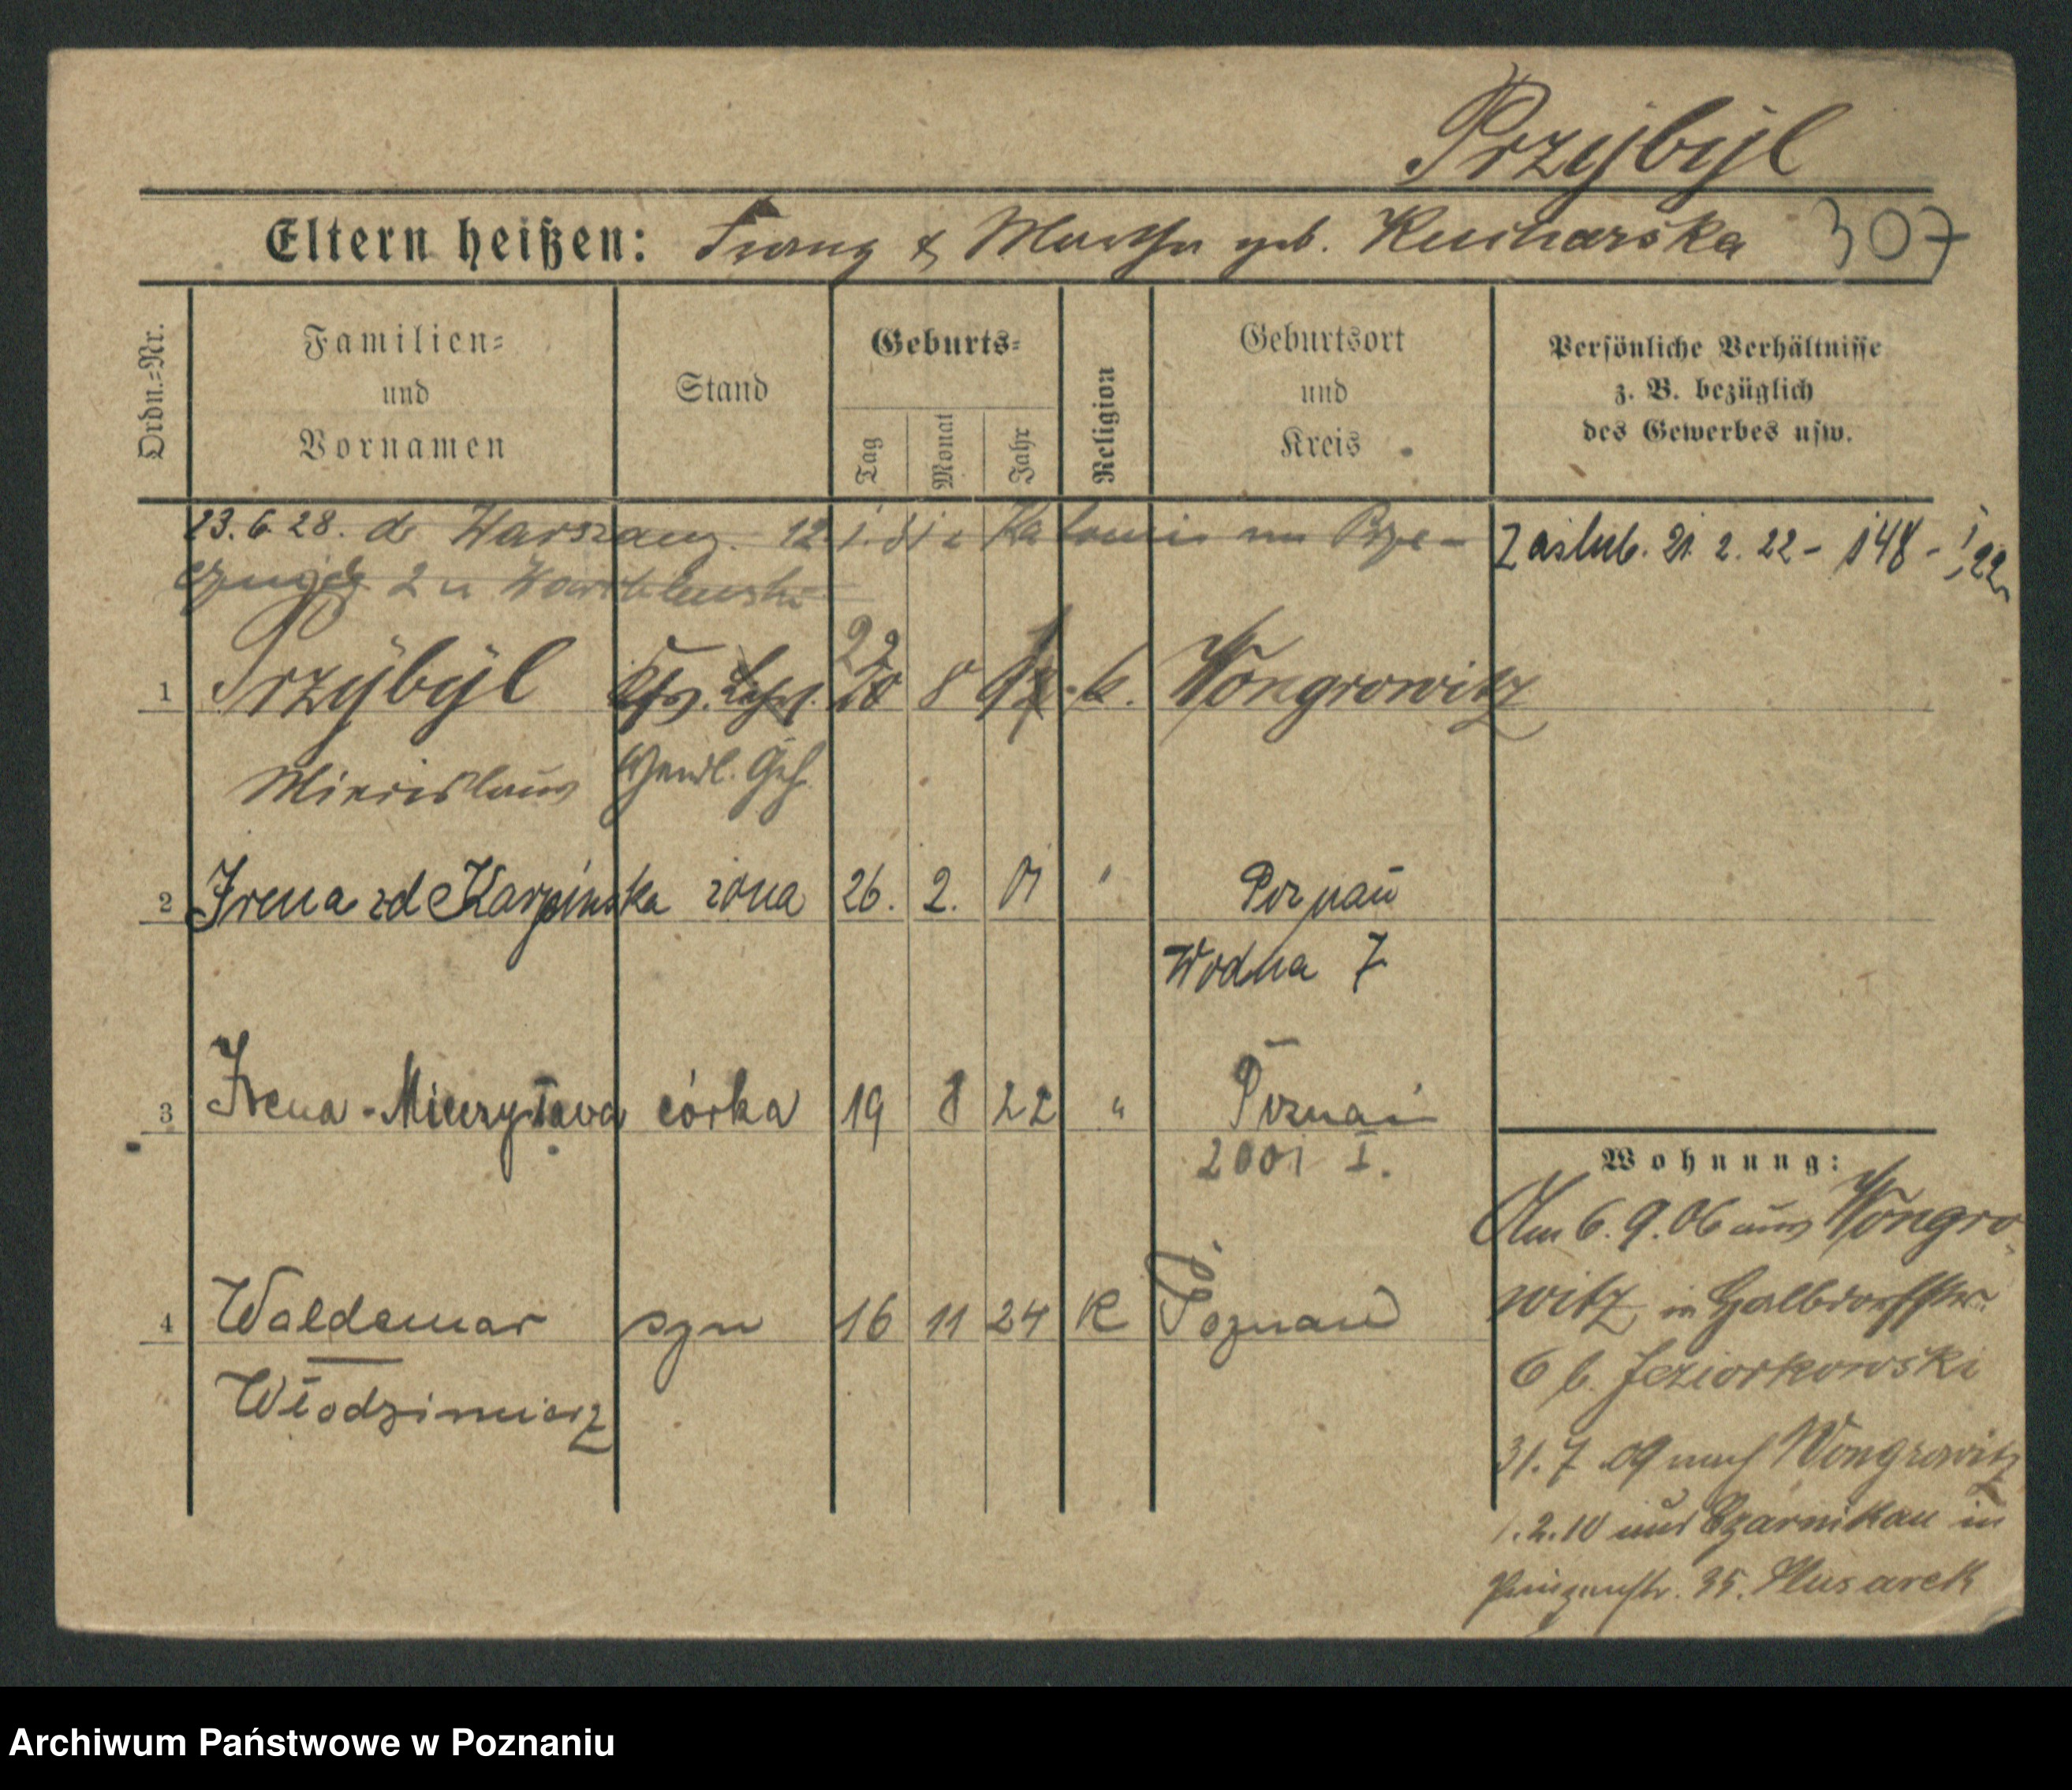 Przybÿl
Eltern heißen: Franz & Martha geb. Kucharska 307
Ordn.=Nr.
Familien=
und
Vornamen
Stand
Geburts=
Tag
Monat
Jahr
Religion
Geburtsort
und
Kreis
Persönliche Verhältnisse
z. B. bezüglich
des Gewerbes usw.
23.6.28. do Warszawy.
Zaślub. 21. 2. 22 - 148 -
1 Przÿbÿl 8 k. Wongrowitz
Miecislaus Handl. Geh.
2 Irena zd Karpinska żona 26. 2. 01 " Poznań
Wodna 7
3 Irena - Mieczysława córka 19 8 22 " Poznań
2001 I.
4 Waldemar syn 16 11 24 K Poznań
Włodzimierz
Wohnung:
Am 6.9.06 aus Wongro
witz in
6 b. Jeziorkowski
31.7.09 nach Wongrowitz
1.2.10 aus Czarnikau in
35. Husarek
Archiwum Państwowe w Poznaniu